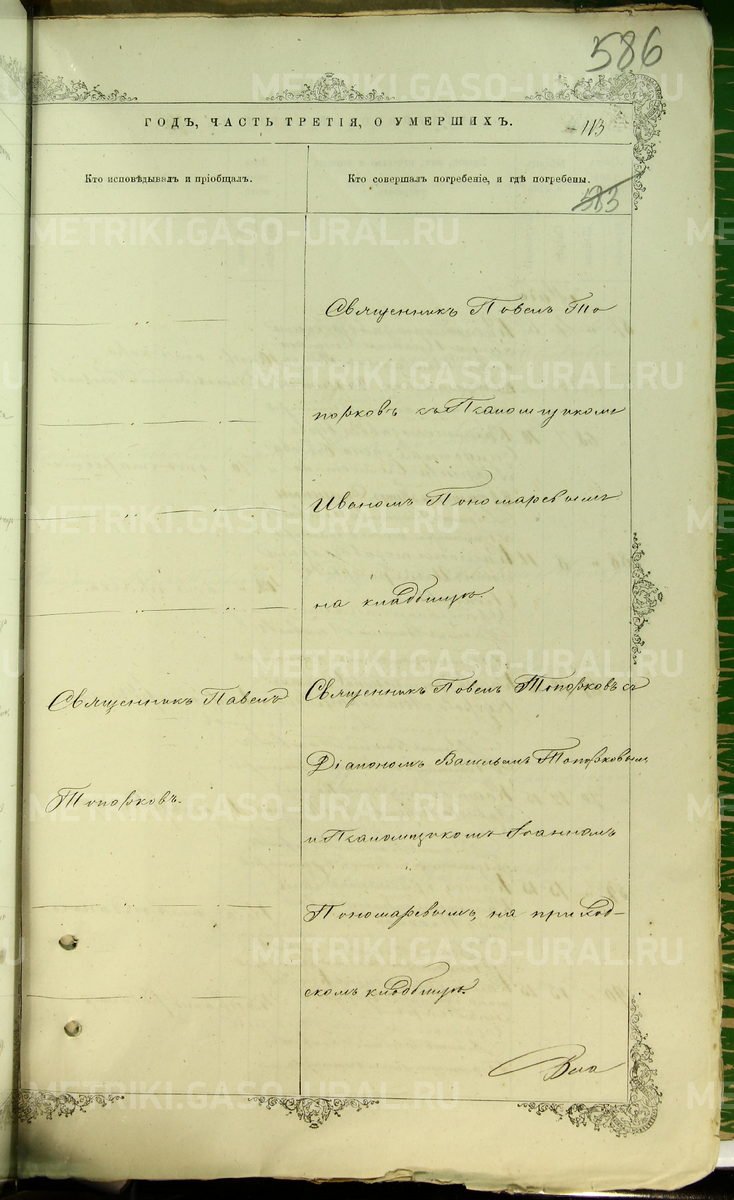 586
ГОДЪ, ЧАСТЬ ТРЕТІЯ, О УМЕРШИХЪ.
113
Кто исповѣдывалъ и пріобщалъ.
Кто совершалъ погребеніе, и гдѣ погребены.
583
Священникъ Павелъ То
порковъ съ Псаломщикомъ
Иваномъ Пономаревымъ
на кладбищѣ.
Священникъ Павелъ
Топорковъ.
Священникъ Павелъ Топорковъ съ
Діакономъ Васильемъ Топорковымъ
и Псаломщикомъ Іоанномъ
Пономаревымъ, на приход-
скомъ кладбищѣ.
METRIKI.GASO-URAL.RU